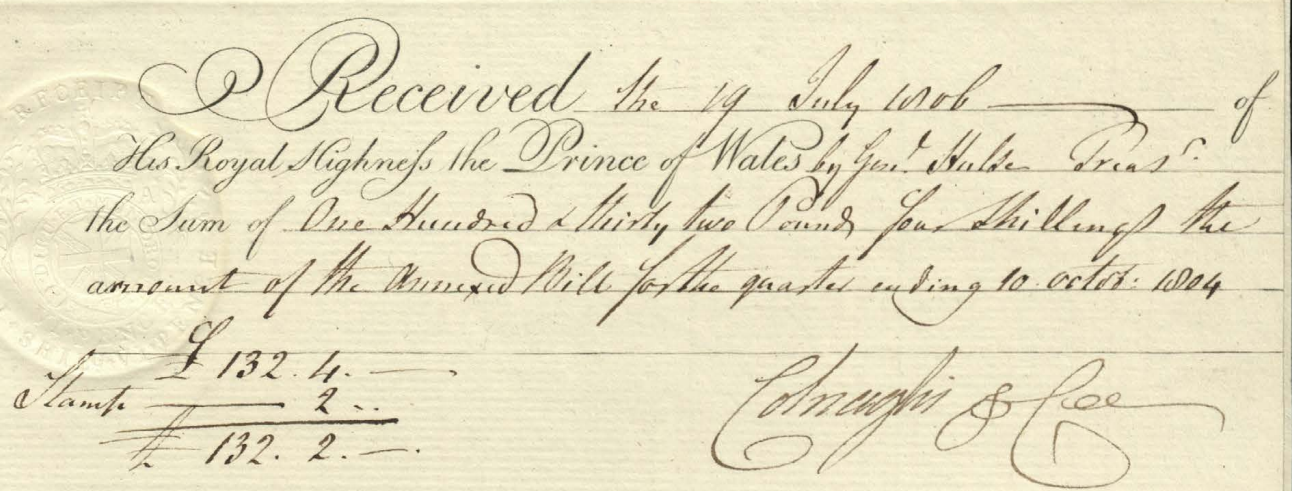 Received the 19 July 1806 of
His Royal Highneſs the Prince of Wales by Genl. Hulse Treasr.
the Sum of One Hundred & thirty two Pounds four Shillings the
amount of the Annexed Bill for the quarter ending 10 octobr: 1804
£ 132. 4. —
Stamp — 2 ..
£ 132. 2. —.
Colnaghi & Co
RECEIPT
SHILLING